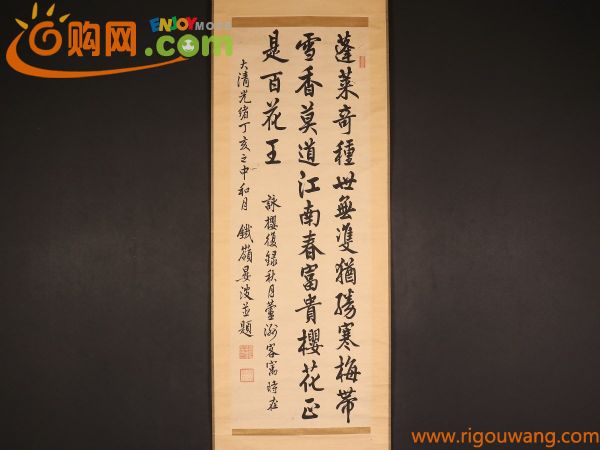 蓬莱奇種世無双猶勝寒梅帯
雪香莫道江南春富貴櫻花正
是百花王
詠櫻復録秋月蘆洲客寓時在
大清光緒丁亥之中和月 鐵嶺晏波並題
购网
ENJOY MORE
.com
www.rigouwang.com